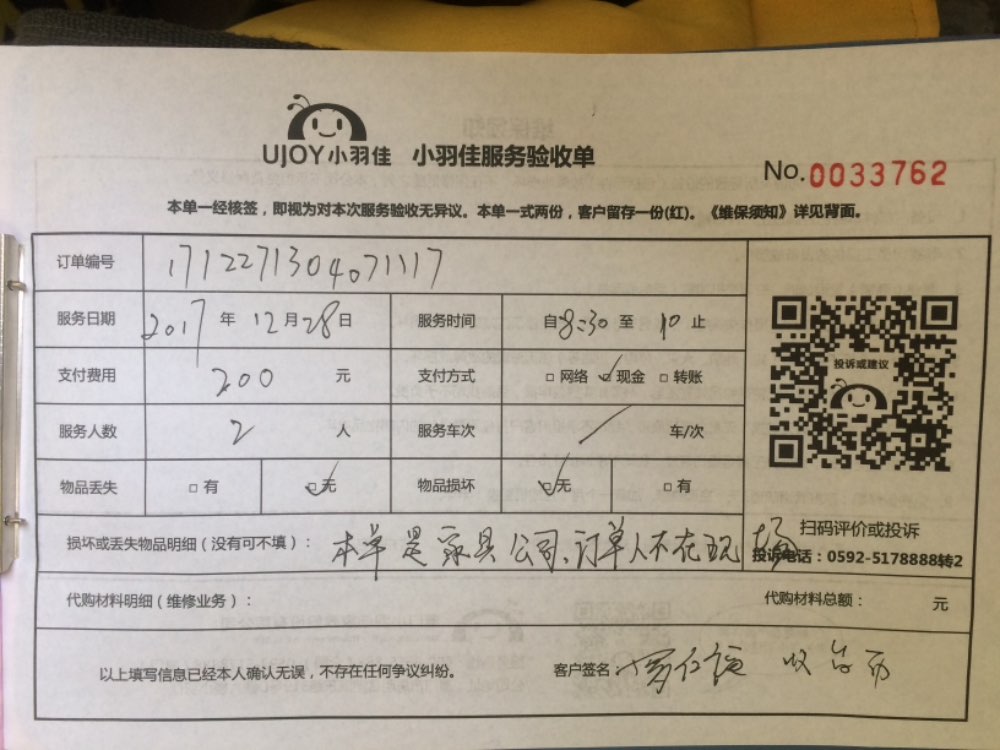 UJOY小羽佳 小羽佳服务验收单
No.0033762
本单一经核签，即视为对本次服务验收无异议。本单一式两份，客户留存一份(红)。《维保须知》详见背面。
订单编号 1712271304071117
服务日期 2017年12月28日 服务时间 自8:30至10止
支付费用 200元 支付方式 □网络 ☑现金 □转账
投诉或建议
服务人数 2人 服务车次 / 车/次
物品丢失 □有 ☑无 物品损坏 ☑无 □有
扫码评价或投诉
损坏或丢失物品明细（没有可不填）：本单是家具公司、订单人不在现场
投诉电话：0592-5178888转2
代购材料明细（维修业务）： 代购材料总额： 元
以上填写信息已经本人确认无误，不存在任何争议纠纷。 客户签名：